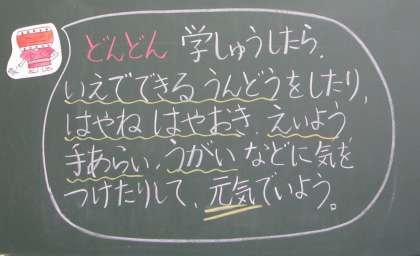 どんどん 学しゅうしたら、
いえでできる うんどうをしたり、
はやね はやおき、えいよう、
手あらい、うがい などに 気を
つけたりして、元気でいよう。